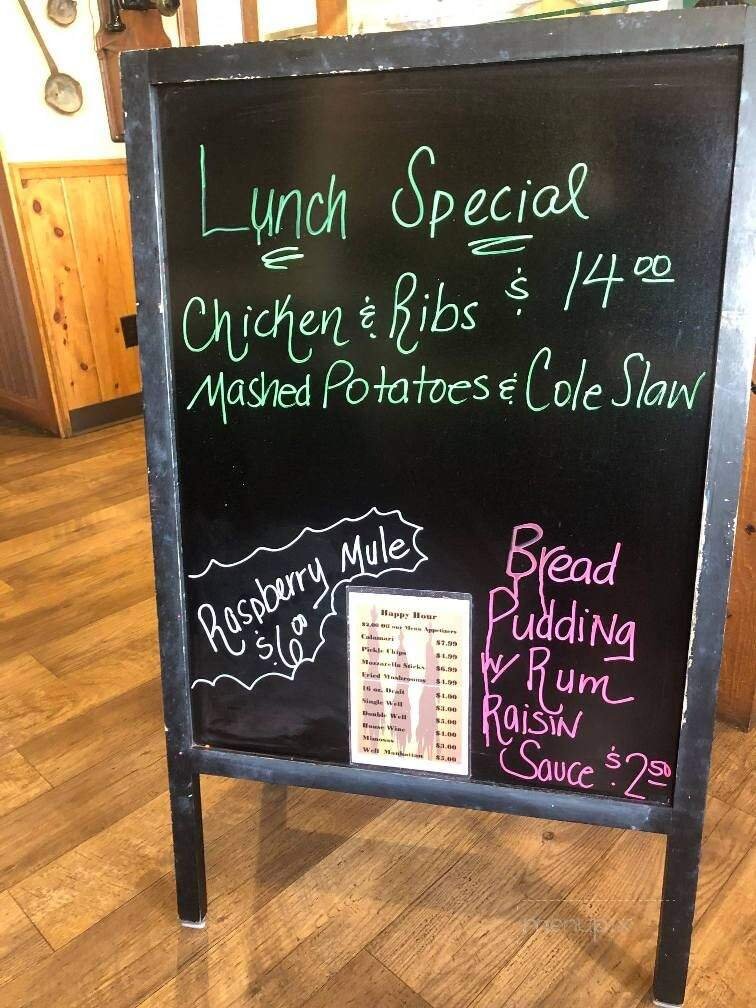 Lunch Special
Chicken & Ribs $ 14.00
Mashed Potatoes & Cole Slaw
Raspberry Mule
$6.00
Bread
Pudding
w/ Rum
Raisin
Sauce $2.50
Happy Hour
$2.00 Off our Menu Appetizers
Calamari $7.99
Pickle Chips $4.99
Mozzarella Sticks $6.99
Fried Mushrooms $4.99
16 oz. Draft $4.00
Single Well $3.00
Double Well $5.00
House Wine $4.00
Mimosas $3.00
Well Manhattan $5.00
menupix